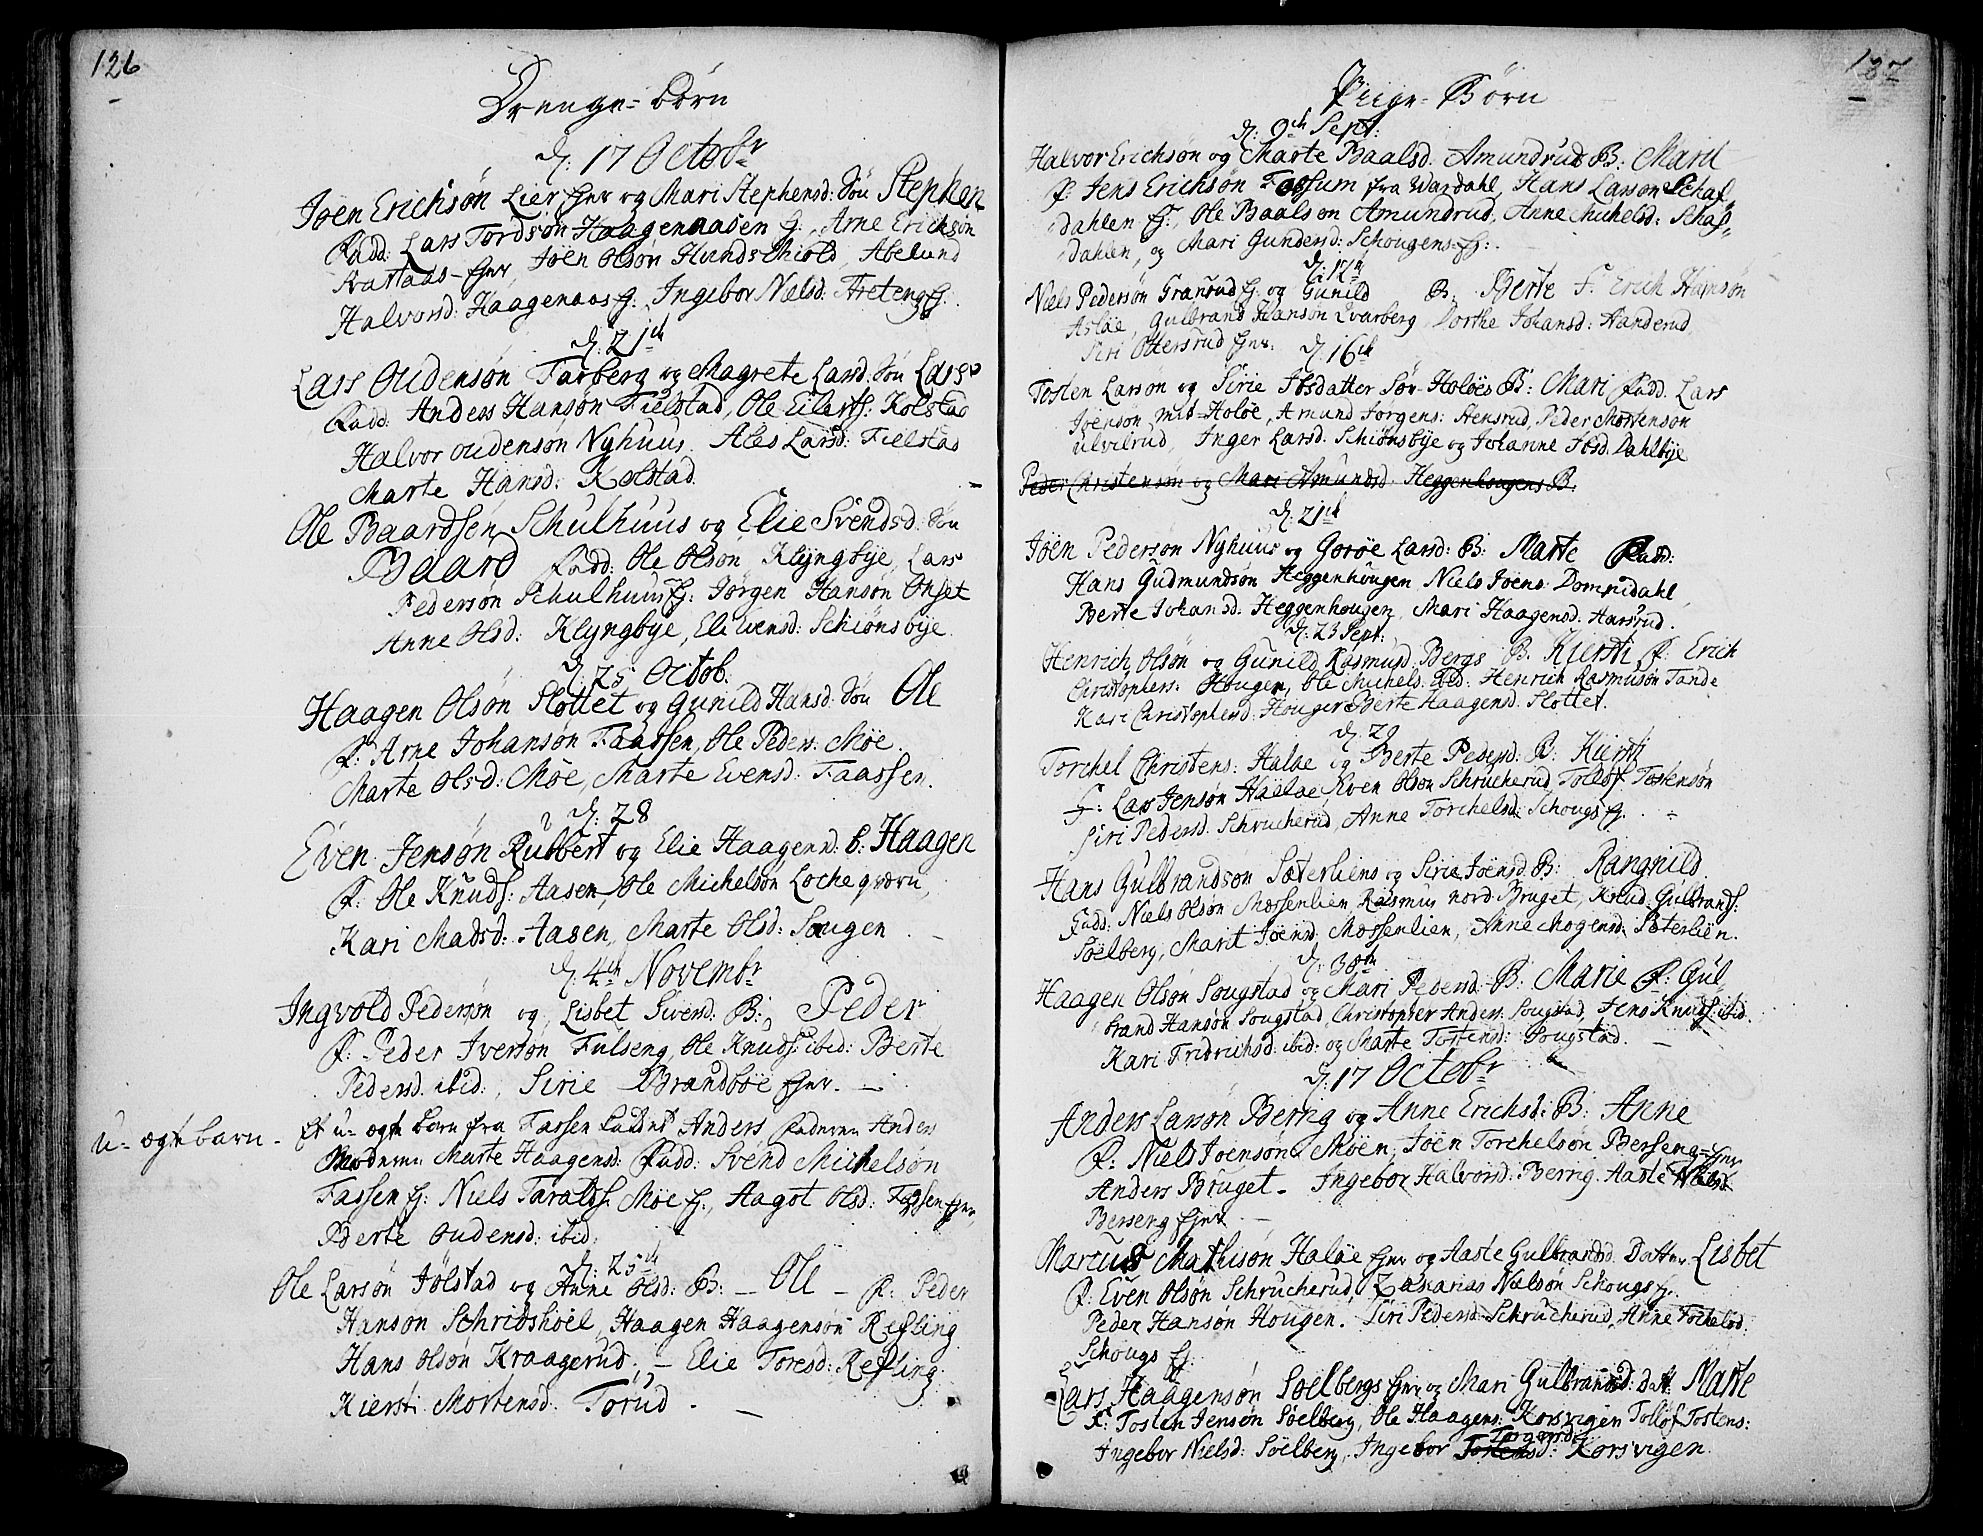 126
Drenge-børn
d: 17 Octobr
Joen Erichsøn Lier Ejer og Mari Stephensd: Søn Stephen
Fadd: Lars Tordsøn Haagenaasen E:, Arne Erichsøn
Aastaas-Ejer, Joen Olsøn Hundschiold, Abelund
Halvorsd: Haagenaas E:, Ingebor Nielsd: Areteng E:.
d: 21de
Lars Oudensøn Farberg og Magrete Larsd: Søn Lars
Fadd: Anders Hansøn Fielstad, Ole Eilerts: Kolstad
Halvor Oudensøn Nyhuus, Alas Larsd: Fielstad
Marte Hansd: Kolstad.
Ole Baardsen Schulhuus og Elie Svendsd: Søn
Baard Fadd: Ole Olsøn Klyngbye, Lars
Pedersøn Schulhuus E: Jørgen Hansøn Onset
Anne Olsd: Klyngbye, Eli Evensd: Schiønsbye.
d: 25 Octob.
Haagen Olsøn Slottet og Gunild Hansd: Søn Ole
F: Arne Johansøn Faassen, Ole Peders: Møe.
Marte Olsd: Møe, Marte Evensd: Faassen.
d: 28
Even Jensøn Rubbert og Elie Haagensd: B: Haagen
F: Ole Knuds: Aasen, Ole Michelsøn Lochegværn,
Kari Madsd: Aasen, Marte Olsd: Sougen.
d: 4de Novembr
Ingvold Pedersøn og Lisbet Siversd: B: Peder
F: Peder Iversøn Fulseng, Ole Knuds: ibid: Berte
Pedersd: ibid:, Sirie Brandbøe Ejer. -
u-ægte barn -
Et u-ægte barn fra Fassen kaldet Anders Faderen Anders
Moderen Marte Haagensd: Fadd: Svend Michelsøn
Fassen E: Niels Taralds: Møe E:, Aagot Olsd: Fassen Ejer,
Berte Oudensd: ibid:
d: 25de
Ole Larsøn Jølstad og Anne Olsd: B: - Ole - F: Peder
Hansøn Schridshoel, Haagen Haagensøn Refling
Hans Olsøn Kraagerud, - Elie Toresd: Refling
Kiersti Mortensd: Torud. -
127
Piige-Børn
d: 9de Sept:
Halvor Erichsøn og Marte Baalsd: Amundrud B: Marit
F: Jens Erichsøn Fossum fra Wardahl, Hans Larsøn Schaf-
dahlen E:, Ole Baalsøn Amundrud, Anne Michelsd: Schaf-
dahlen, og Mari Gundersd: Schougens E:.
d: 12te
Niels Pedersøn Gransrud E: og Gunild B: Berte F: Erich Hansøn
Asløe, Gulbrand Hansøn Svarberg, Dorthe Johansd: Handerud
Siri Ottersrud Ejer:
d: 16de
Tosten Larsøn og Sirie Ibsdatter Sør-Holøes B: Mari Fadd: Lars
Joensøn Mid-Holøe, Amund Jørgens: Stensrud, Peder Mortensøn
Ulvilrud, Inger Larsd: Schiønsbye og Johanne Ibsd: Dahlbye
Peder Christensøn og Mari Amundsd: Heggenhougens B:
d: 21de
Joen Pedersøn Nyhuus og Goroe Larsd: B: Marte Fadd:
Hans Gudmundsøn Heggenhougen, Niels Joens: Domnidahl,
Berte Johansd: Heggenhougen, Mari Haagensd: Harsrud.
d: 23 Sept:
Henrich Olsøn og Gunild Rasmusd: Bergs B: Kiersti F: Erich
Christophers: Hougen, Ole Michels: ibid: Henrich Rasmusøn Tande
Kari Christophersd: Hougen Berte Haagensd: Slottet.
d: 29
Torchel Christens: Haløe og Berte Pedersd: B: Kiersti
F: Lars Jensøn Haeløe Even Olsøn Schrucherud, Tollof Tostensøn
Siri Pedersd: Schrucherud, Anne Torchelsd: Schougs E:.
Hans Gulbrandsøn Sæterliens og Sirie Joensd: B: Rangnild
Fadd: Niels Olsøn Mossenlien Rasmus Nord-Bruget, Knud Gulbrands:
Soelberg, Marit Joensd: Mossenlien, Anne Mogensd: Sæterlien.
d: 30te
Haagen Olsøn Sougstad og Mari Pedersd: B: Marie F: Gul-
brand Hansøn Sougstad, Christopher Anders: Sougstad, Jens Knuds: ibid:
Kari Fridrichsd: ibid: og Marte Tostensd: Sougstad. -
d: 17 Octobr
Anders Larsøn Berrig og Anne Erichsd: B: Anne
F: Niels Joensøn Moen, Joen Torchelsøn Berseng-Ejer
Anders Bruget - Ingebor Halvorsd: Berrig. Aaste Nielsd:
Berseng Ejer -
Marcus Mathisøn Haløe Ejer og Aaste Gulbrandsd: Datter Lisbet
F: Even Olsøn Schrucherud, Zakarias Nielsøn Schougs E:.
Peder Hansøn Hougen. Siri Pedersd: Schrucherud, Anne Torchelsd:
Schougs E:
Lars Haagensøn Soelbergs Ejer og Mari Gulbrandsd: Dat: Marte
F: Tosten Jensøn Soelberg, Ole Haagens: Korsvigen Tollof Tostens:
Torgersd:
Ingebor Nielsd: Soelberg, Ingebor Tostensd: Korsvigen.